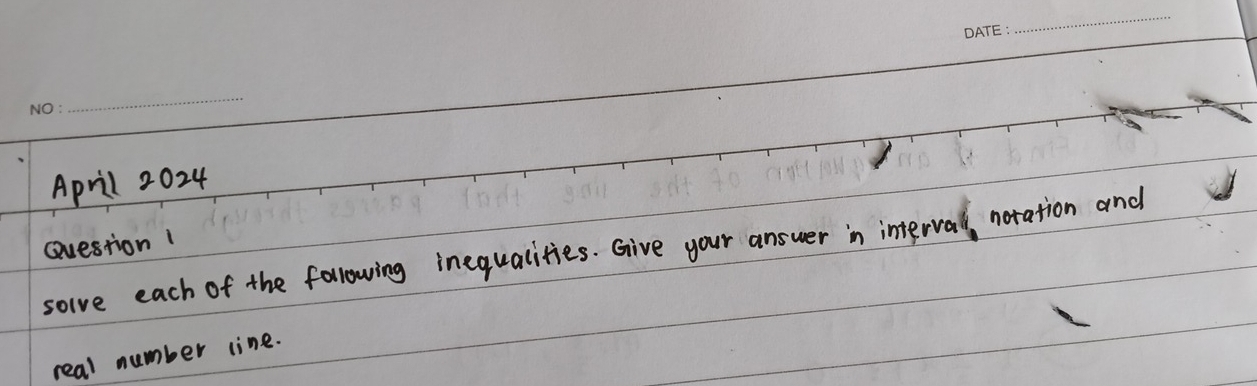 DATE :
NO :
April 2024
Question 1
solve each of the following inequalities. Give your answer in interval notation and
real number line.